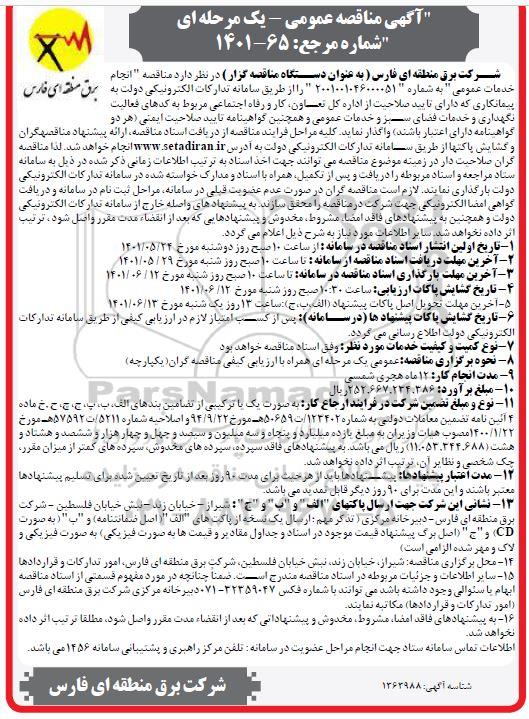 "آگهی مناقصه عمومی – یک مرحله ای
"شماره مرجع: ۶۵-۱۴۰۱
برق منطقه ای فارس
شـــرکت برق منطقه ای فارس ( به عنوان دســـتگاه مناقصه گزار ) در نظر دارد مناقصه " انجام
خدمات عمومی " به شماره " ۲۰۰۱۰۰۱۰۴۶۰۰۰۰۵۱ " را از طریق سامانه تدارکات الکترونیکی دولت به
پیمانکاری که دارای تایید صلاحیت از اداره کل تعـــاون، کار و رفاه اجتماعی مربوط به کدهای فعالیت
نگهداری و خدمات فضای سـبز و خدمات عمومی و همچنین گواهینامه تایید صلاحیت ایمنی (هر دو
گواهینامه دارای اعتبار باشند) واگذار نماید. کلیه مراحل فرایند مناقصه از دریافت اسناد مناقصه، ارائه پیشنهاد مناقصهگران
و گشایش پاکتها از طریق ســـامانه تدارکات الکترونیکی دولت به آدرس www.setadiran.ir انجام خواهد شد. لذا مناقصه
گران صلاحیت دار در زمینه موضوع مناقصه می توانند جهت اخذ اسناد به ترتیب اطلاعات زمانی ذکر شده در ذیل به سامانه
ستاد مراجعه و اسناد مربوطه را دریافت و پس از تکمیل، به همراه با اسناد و مدارک خواسته شده در سامانه تدارکات الکترونیکی
دولت بارگذاری نمایند. لازم است مناقصه گران در صورت عدم عضویت قبلی در سامانه، مراحل ثبت نام در سامانه و دریافت
گواهی امضا الکترونیکی جهت شرکت در مناقصه را محقق سازند. به پیشنهادهای واصله خارج از سامانه تدارکات الکترونیکی
دولت و همچنین به پیشنهادهای فاقد امضا، مشروط، مخدوش و پیشنهادهایی که بعد از انقضاء مدت مقرر واصل شود ، ترتیب
اثر داده نخواهد شد. سایر اطلاعات مورد نیاز به شرح ذیل اعلام می گردد.
۱- تاریخ اولین انتشار اسناد مناقصه در سامانه : از ساعت ۱۰ صبح روز دوشنبه مورخ ۱۴۰۱/۰۵/۲۴
۲- آخرین مهلت دریافت اسناد مناقصه از سامانه : تا ساعت ۱۰ صبح روز شنبه مورخ ۲۹ /۱۴۰۱/۰۵
۳- آخرین مهلت بارگذاری اسناد مناقصه در سامانه : تا ساعت ۱۰ صبح روز شنبه مورخ ۱۲ /۰۶ /۱۴۰۱
۴- تاریخ گشایش پاکات ارزیابی: ساعت ۱۰:۳۰ صبح روز شنبه مورخ ۱۴۰۱/۰۶/۱۲
۵- آخرین مهلت تحویل اصل پاکات پیشنهاد (الف،ب،ج): ساعت ۱۳ روز یک شنبه مورخ ۱۴۰۱/۰۶/۱۳
۶- تاریخ گشایش پاکات پیشنهاد ها (در ســـامانه): پس از کســـب امتیاز لازم در ارزیابی کیفی از طریق سامانه تدارکات
الکترونیکی دولت اطلاع رسانی می گردد.
۷- نوع کمیت و کیفیت خدمات مورد نظر: وفق اسناد مناقصه خواهد بود
۸- نحوه برگزاری مناقصه: عمومی یک مرحله ای همراه با ارزیابی کیفی مناقصه گران(یکپارچه)
۹- مدت انجام کار: ۱۲ ماه هجری شمسی
۱۰- مبلغ برآورد: ۲۵۲.۶۶۷.۲۳۴.۳۸۶ ریال
۱۱- نوع و مبلغ تضمین شرکت در فرایند ارجاع کار: به صورت یک یا ترکیبی از تضامین بندهای الف، ب، پ، ج، چ، ح، خ ماده
۴ آئین نامه تضمین معاملات دولتی به شماره ۱۲۳۴۰۲/ت۵۰۶۵۹هـ مورخ ۹۴/۹/۲۲ و اصلاحیه شماره ۵۲۱۱/ت۵۷۵۹۲هـ مورخ
۱۴۰۰/۱/۲۲ مصوب هیات وزیران به مبلغ یازده میلیارد و پنجاه و سه میلیون و سیصد و چهل و چهار هزار و ششصد و هشتاد و
هشت (۱۱.۰۵۳.۳۴۴.۶۸۸) ریال می باشد. به پیشنهادهای فاقد سپرده، سپرده های مخدوش، سپرده های کمتر از میزان مقرر،
چک شخصی و نظایر آن، ترتیب اثر داده نخواهد شد.
۱۲- مدت اعتبار پیشنهادها: پیشـــنهادها باید از هرحیث برای مدت ۹۰ روز بعد از تاریخ تعیین شده برای تسلیم پیشنهادها
معتبر باشند و این مدت برای ۹۰ روز دیگر قابل تمدید می باشد.
۱۳- نشانی این شرکت جهت ارسال پاکتهای "الف" و "ب" و "ج" : شیراز – خیابان زند – نبش خیابان فلسطین – شرکت
برق منطقه ای فارس – دبیرخانه مرکزی ( تذکر مهم : ارسال یک نسخه از پاکت های " الف " ( اصل ضمانتنامه) و " ب " ( به صورت
CD) و " ج " (اصل برگ پیشنهاد قیمت موجود در اسناد و جداول مقادیر و قیمت ها به صورت فیزیکی) به صورت فیزیکی و
لاک و مهر شده الزامی است)
۱۴- محل برگزاری مناقصه: شیراز، خیابان زند، نبش خیابان فلسطین، شرکت برق منطقه ای فارس، امور تدارکات و قراردادها
۱۵- سایر اطلاعات و جزئیات مربوطه در اسناد مناقصه مندرج اســـت. ضمناً چنانچه در مورد مفهوم قسمتی از اسناد مناقصه
ابهام یا سئوالی وجود داشته باشد می توانند با شماره فکس ۳۲۳۵۹۰۴۷-۰۷۱ دبیرخانه مرکزی شرکت برق منطقه ای فارس
(امور تدارکات و قراردادها) مکاتبه نمایند.
۱۶- به پیشنهادهای فاقد امضا، مشروط، مخدوش و پیشنهاداتی که بعد از انقضاء مدت مقرر واصل شود، مطلقا ترتیب اثر داده
نخواهد شد.
اطلاعات تماس سامانه ستاد جهت انجام مراحل عضویت در سامانه : تلفن مرکز راهبری و پشتیبانی سامانه ۱۴۵۶ می باشد.
شناسه آگهی: ۱۳۶۳۹۸۸
شرکت برق منطقه ای فارس